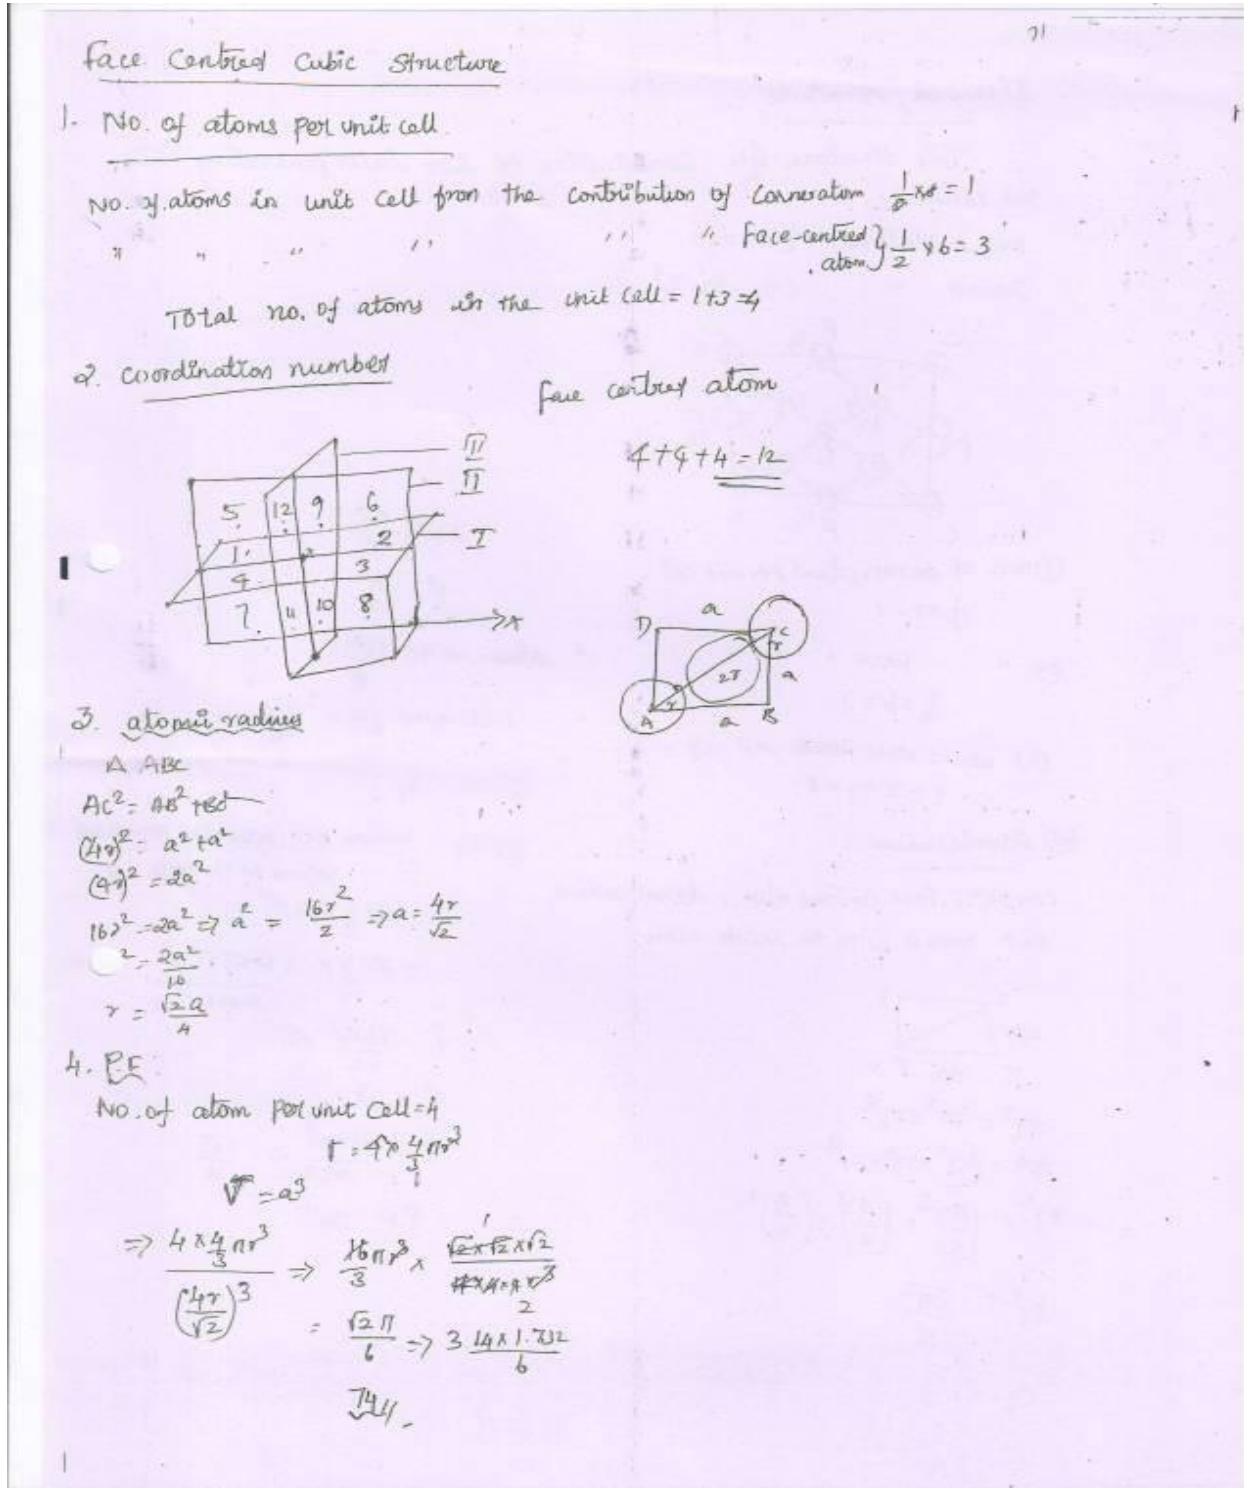 71
Face Centred Cubic Structure
1. No. of atoms per unit cell
No. of atoms in unit cell from the contribution of Corner atom 1/8 × 8 = 1
" " " " " " Face-centred atom } 1/2 × 6 = 3
Total no. of atoms in the unit cell = 1+3=4
2. Coordination number
face centred atom
4+4+4=12
III
II
I
5 12 9 6
1 2
4 3
7 11 10 8
X
D a C
r
2r a
r
A a B
3. atomic radius
Δ ABC
AC² = AB² + BC²
(4r)² = a² + a²
(4r)² = 2a²
16r² = 2a² ⇒ a² = 16r²/2 ⇒ a = 4r/√2
² = 2a²/16
r = √2 a/4
4. P.F :
No. of atom per unit Cell = 4
= 4 × 4/3 πr³
V = a³
⇒ 4 × 4/3 πr³ / (4r/√2)³ ⇒ 16/3 πr³ × √2×√2×√2 / 4×4×4×r³
1
2
= √2 π/6 ⇒ 3.14 × 1.732/6
74%